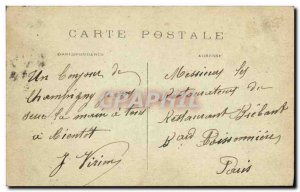 CARTE POSTALE
CORRESPONDANCE
ADRESSE
Un bonjour de
Champigny
la main à tous
à bientôt
J.
Messieurs les
du
Restaurant Brébant
Bard Poissonnière
Paris